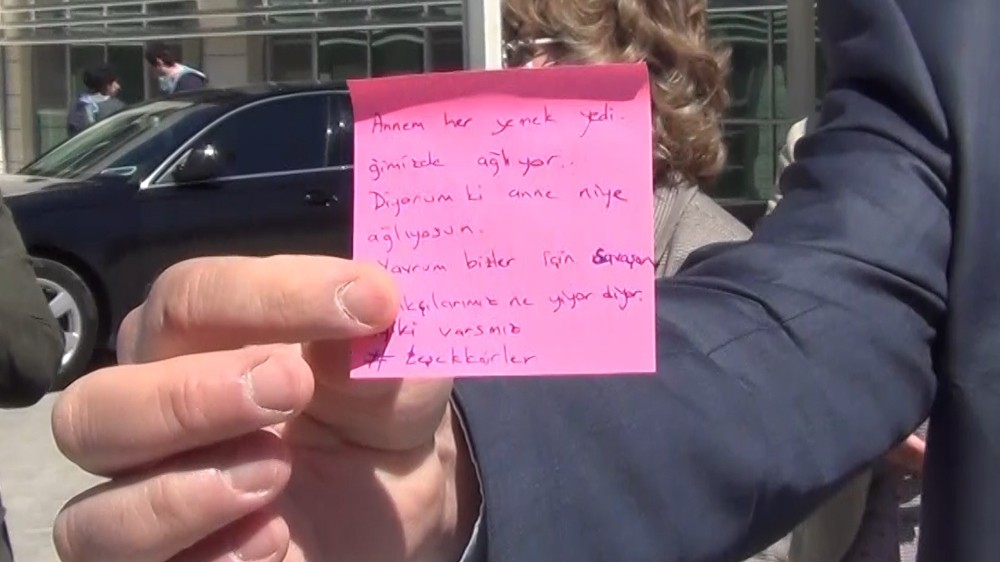 Annem her yemek yedi.
ğimizde ağlıyor..
Diyorum ki anne niye
ağlıyosun.
Yavrum bizler için Savaşan
ne yiyor diyor.
varsınız
# teşekkürler